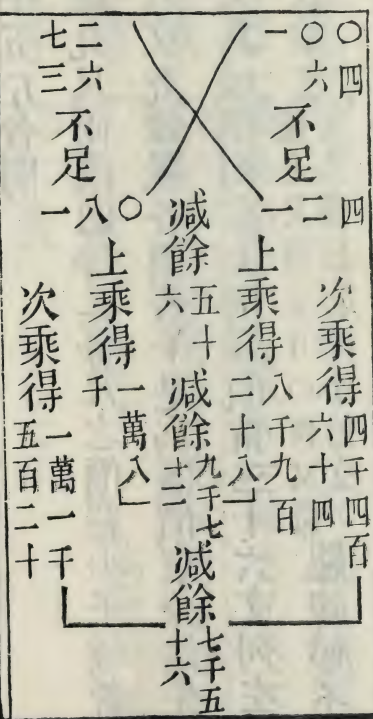 一〇〇
六四
不足
一二四
次乘得四千四百六十四
上乘得八千九百二十八
減餘五十六
減餘九千七十二
減餘七千五十六
七二
三六
不足
一八〇
上乘得一萬八千
次乘得一萬一千五百二十